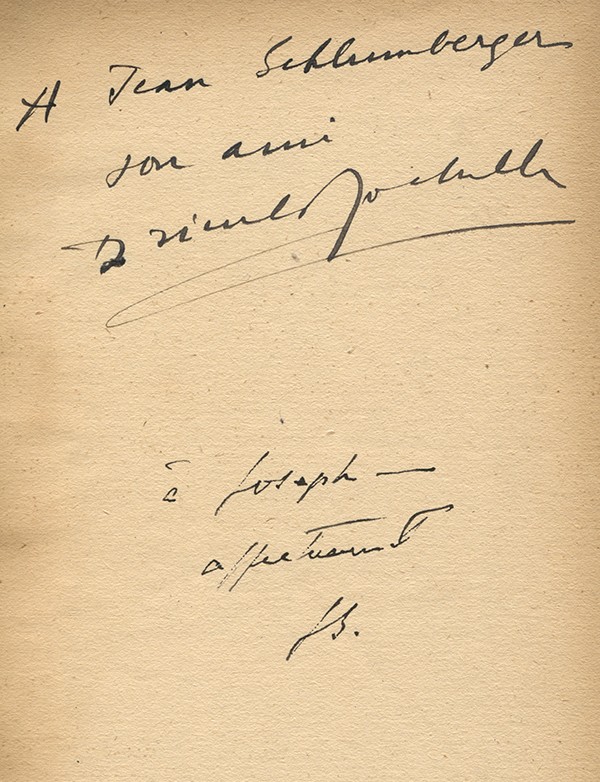 A Jean Schlumberger
son ami
Drieu la Rochelle
à Joseph —
affectueusmt
JS.